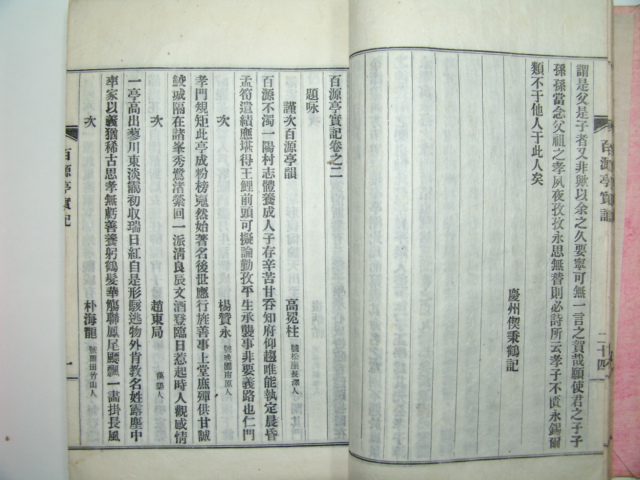 謂是父是子者又非歟以余之久要寧可無一言之賀哉願使君之子子
孫孫當念父祖之孝夙夜孜孜永思無替則必詩所云孝子不匱永錫爾
類不于他人于此人矣
慶州偰秉鶴記
百源亭實記
二十四
百源亭實記卷之二
題咏
謹次百源亭韻
高冕柱 號松居長澤人
百源不濁一陽村志體養成人子存辛苦甘吞知府仰趨唯能執定晨昏
孟筍遺績應堪得王鯉前頭可擬論勤孜平生承襲事非要義路也仁門
次
楊贊永 號晚圃南原人
孝門規矩此亭成粉榜嵬然始著名後世應行旌善事上堂庶殫供甘誠
綾城隔在諸峯秀鷺渚縈回一派淸良辰文酒登臨日惹起時人觀感情
次
趙東局 漢陽人
一亭高出蓼川東淡靄初收瑞日紅自是形骸逃物外肯教名姓露塵中
率家以義猶稀古思孝無虧善養躬鶴髮華觴聯鳳尾飂飄一畵掛長風
次
朴海龍 竹山人
百源亭實記
一